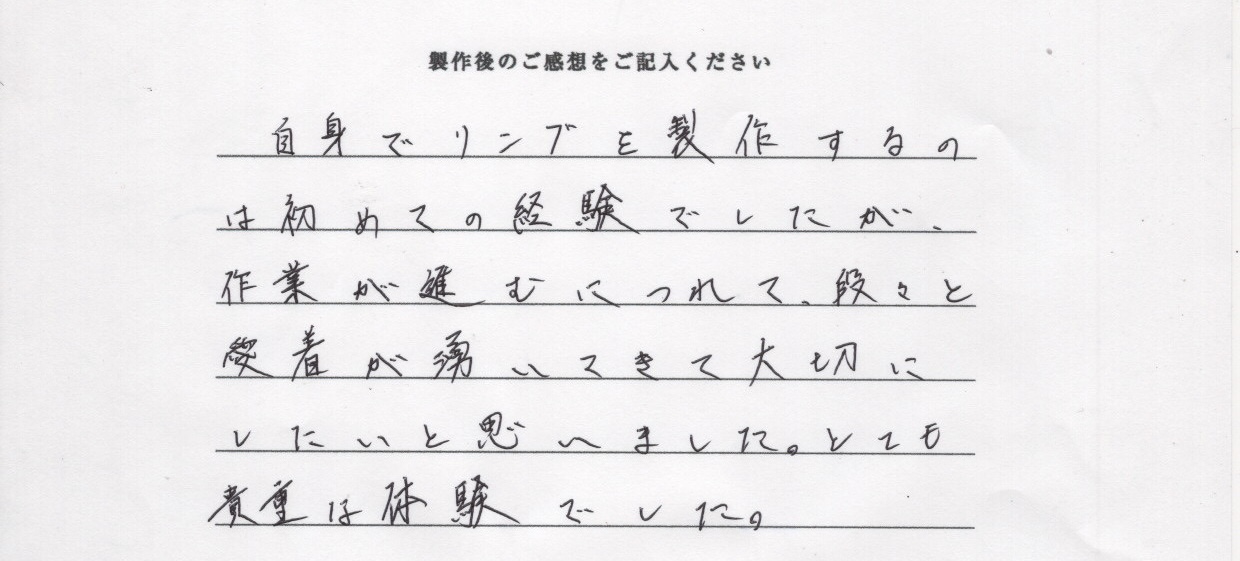 製作後のご感想をご記入ください
自身でリングを製作するの
は初めての経験でしたが、
作業が進むにつれて、段々と
愛着が湧いてきて大切に
したいと思いました。とても
貴重な体験でした。